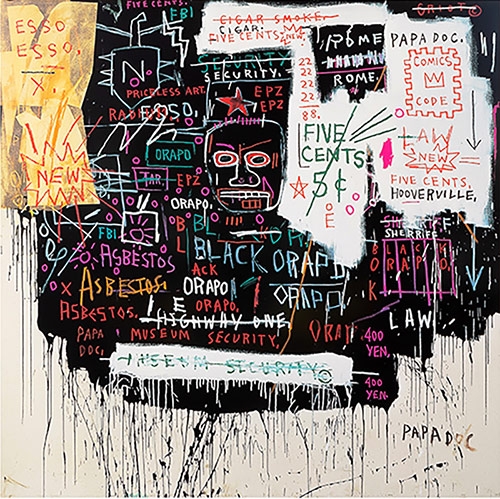 FIVE CENTS.
FBI
ESSO
ESSO,
X.
CIGAR SMOKE.
CIGAR.
FIVE CENTS.
NEW
N
PRICELESS ART.
SECURITY
SECURITY.
EPZ
EPZ
ESSO,
22
22
22
22
88.
ROME
ROME.
PAPA DOC.
COMICS
CODE
FIVE
CENTS
5¢
E
LAW
NEW
FIVE CENTS.
HOOVERVILLE,
NEW
ORAPO
TAR.
EPZ
ORAPO,
FBI
ASBESTOS
ASBESTOS.
ASBESTOS.
BLACK ORAPO
ACK
ORAPO
ORAPO
ORAPO.
HIGHWAY ONE
SHERRIFF
SHERRIFF
LAW
PAPA
DOC,
MUSEUM SECURITY,
400
YEN.
MUSEUM SECURITY©
400
YEN.
PAPA DOC